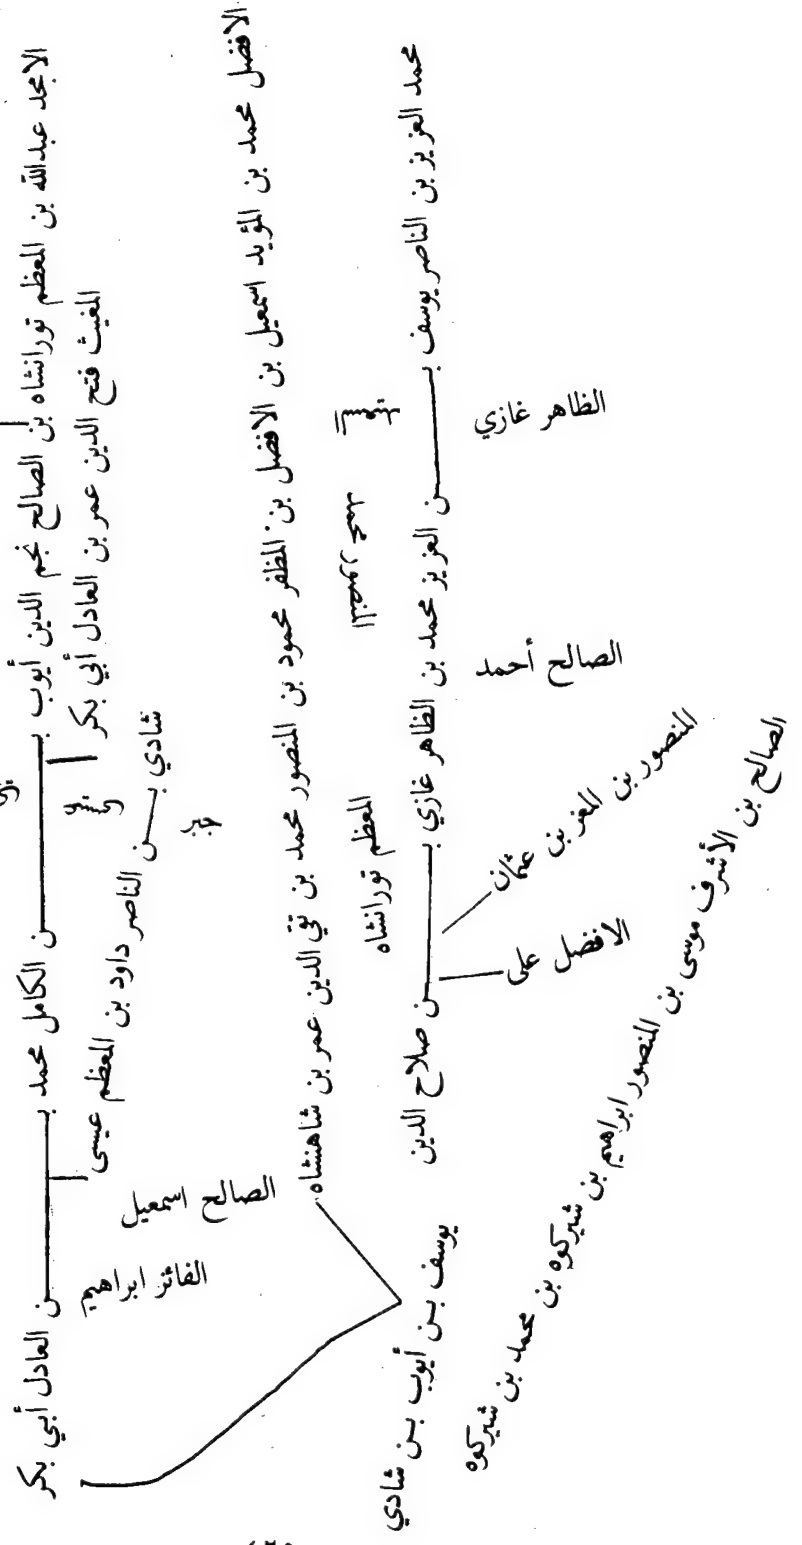 الامجد عبدالله بن المعظم تورانشاه بن الصالح نجم الدين أيوب بـــن الكامل محمد بـــن العادل أبي بكر
المغيث فتح الدين عمر بن العادل أبي بكر
شادي بـــن الناصر داود بن المعظم عيسى
الصالح اسمعيل
الفائز ابراهيم
الافضل محمد بن المؤيد اسمعيل بن الافضل بن المظفر محمود بن المنصور محمد بن تقي الدين عمر بن شاهنشاه
المعظم تورانشاه
محمد العزيز بن الناصر يوسف بـــن العزيز محمد بن الظاهر غازي بـــن صلاح الدين
يوسف بن أيوب بن شادي
الظاهر غازي
الصالح أحمد
المنصور بن المعز بن عثمان
الافضل على
الصالح بن الأشرف موسى بن المنصور ابراهيم بن شيركوه بن محمد بن شيركوه